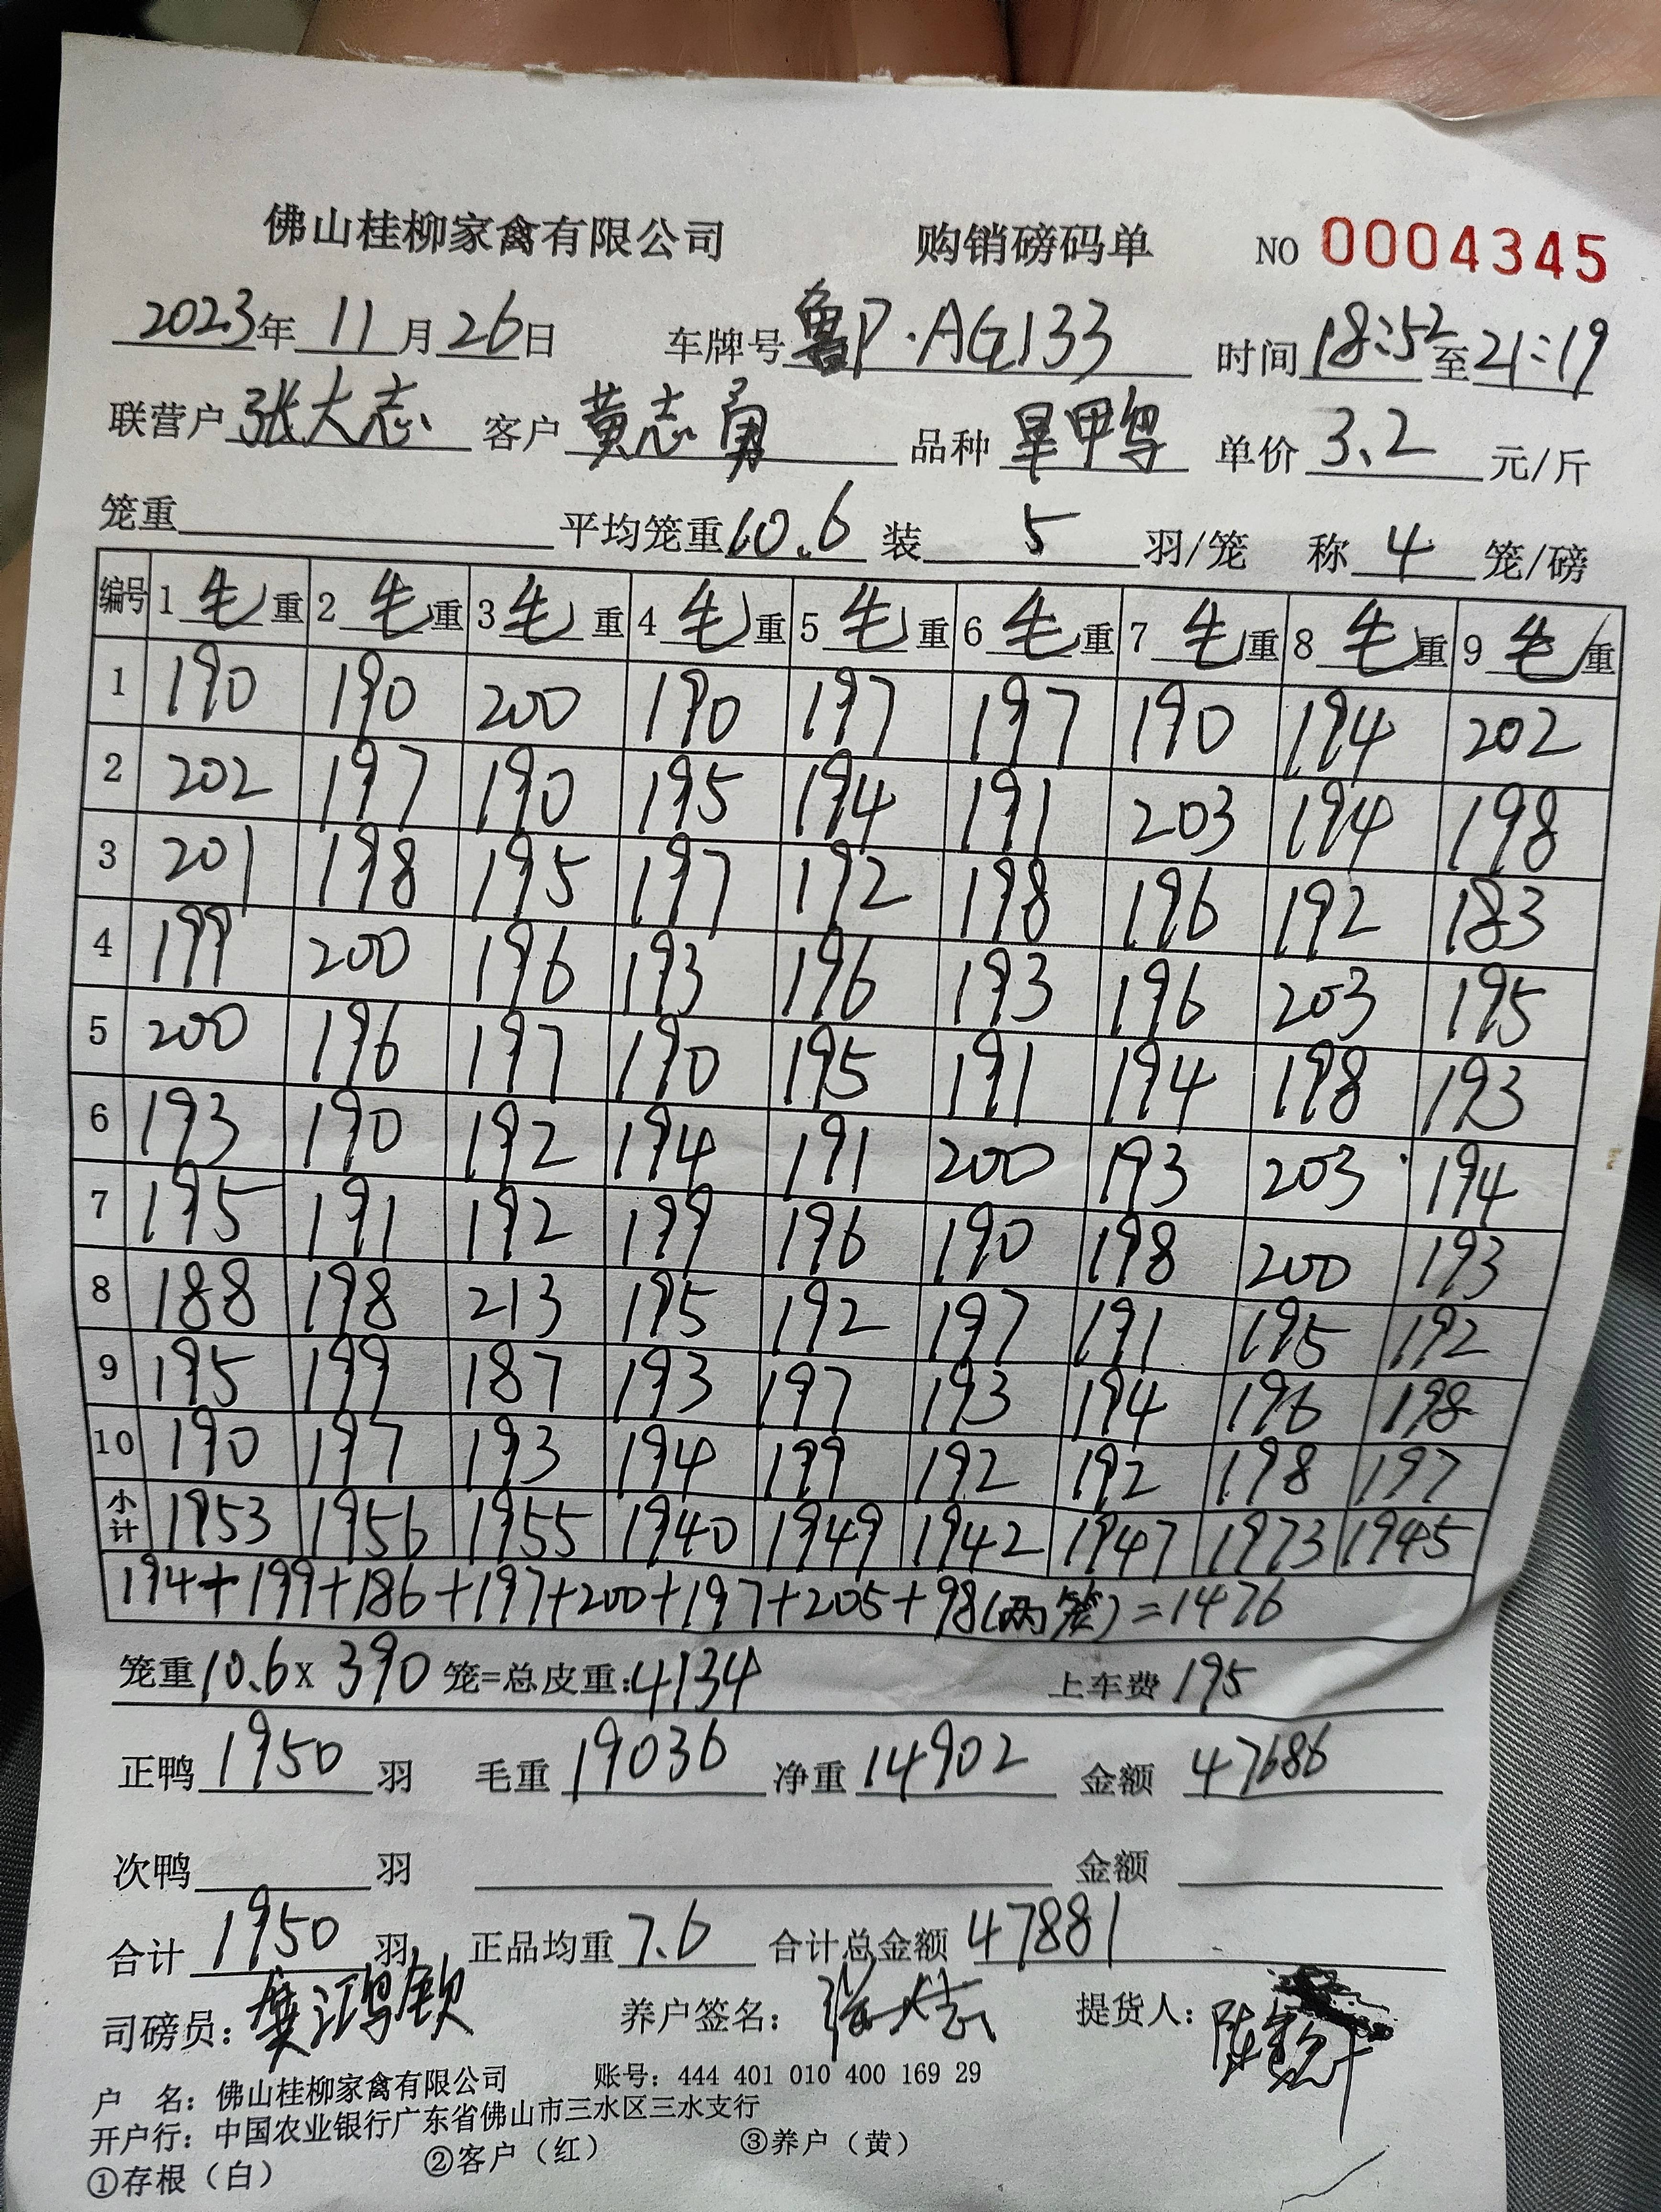 佛山桂柳家禽有限公司 购销磅码单 NO 0004345
2023年 11月26日 车牌号 鲁P·AG133 时间 18:52至21:19
联营户 张大志 客户 黄志勇 品种 旱甲鸭 单价 3.2 元/斤
笼重 平均笼重 10.6 装 5 羽/笼 称 4 笼/磅
编号 1 毛重 2 毛重 3 毛重 4 毛重 5 毛重 6 毛重 7 毛重 8 毛重 9 毛重
1 190 190 200 190 197 197 190 194 202
2 202 197 190 195 194 191 203 194 198
3 201 198 195 197 192 198 196 192 183
4 199 200 196 193 196 193 196 203 195
5 200 196 197 190 195 191 194 198 193
6 193 190 192 194 191 200 193 203 194
7 195 191 192 199 196 190 198 200 193
8 188 198 213 195 192 197 191 195 192
9 195 199 187 193 197 193 194 196 198
10 190 197 193 194 199 192 192 198 197
小计 1953 1956 1955 1940 1949 1942 1947 1973 1945
194+199+186+197+200+197+205+98(两笼)=1476
笼重 10.6 x 390 笼=总皮重:4134 上车费 195
正鸭 1950 羽 毛重 19036 净重 14902 金额 47686
次鸭 羽 金额
合计 1950 羽 正品均重 7.6 合计总金额 47881
司磅员: 养户签名: 张大志 提货人: 陈
户 名: 佛山桂柳家禽有限公司 账号: 444 401 010 400 169 29
开户行: 中国农业银行广东省佛山市三水区三水支行
①存根(白) ②客户(红) ③养户(黄)